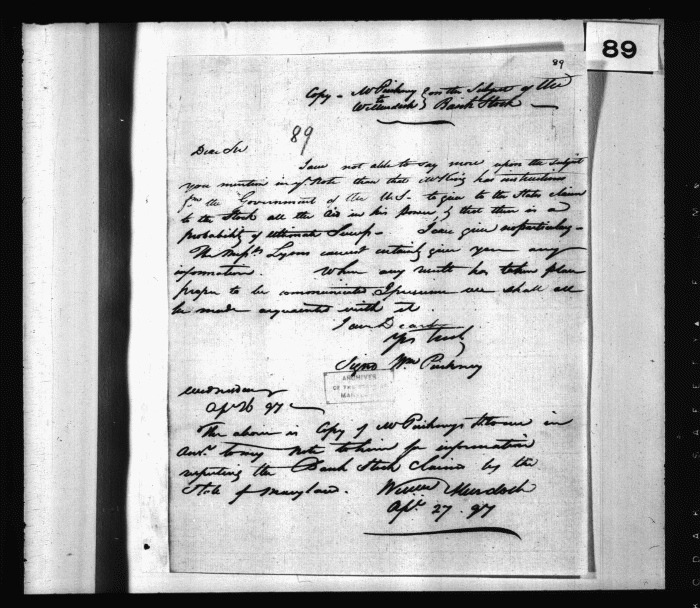 89
89
Copy - Mr Pinkney on the Subject of the
to
Wm Murdoch Bank Stock
89
Dear Sir
I am not able to say more upon the subject
you mention in yr. Note than that Mr King has instructions
from the Government of the U.S. to give to the State claim
to the Stock all the Aid in his Power, & that there is a
probability of ultimate Success. I can give no particulars -
The Messrs. Lyons cannot certainly give you any
information. When any result has taken place
proper to be communicated I presume we shall all
be made acquainted with it.
I am Dear Sir
Yrs truly
Signd Wm Pinkney
ARCHIVES
OF THE
Wednesday
Apl 26 97
The above is Copy of Mr Pinkneys Letter to me in
Answ. to my Note to him for information
respecting the Bank Stock claimed by the
State of Maryland. William Murdoch
Apl. 27. 97